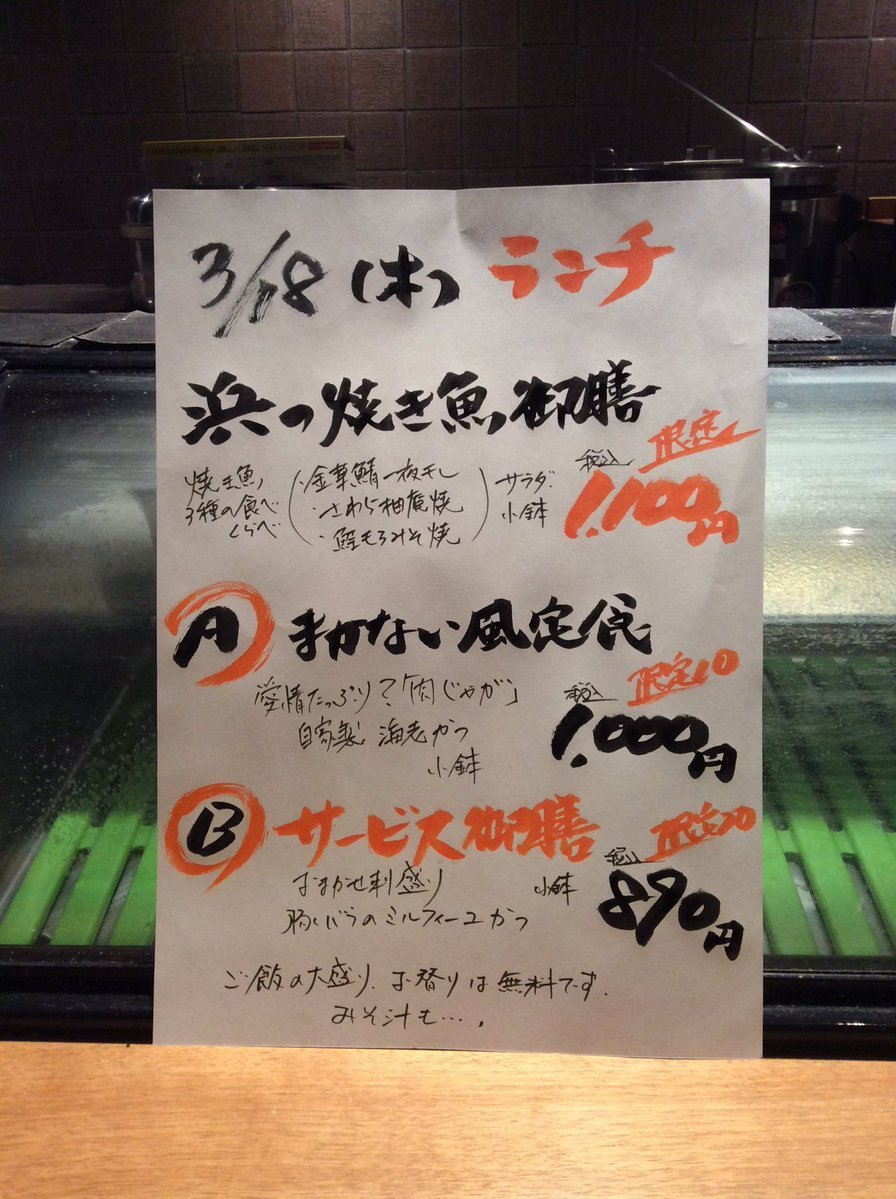 3/18 (木) ランチ
浜の焼き魚御膳
限定
焼き魚
3種の食べ
くらべ
・金華鯖一夜干し
・さわら柚庵焼
・鮭もろみそ焼
サラダ
小鉢
税込
1,100円
A まかない風定食
限定10
愛情たっぷり?「肉じゃが」
自家製 海老かつ
小鉢
税込
1,000円
B サービス御膳
限定20
おまかせ刺盛り
豚バラのミルフィーユかつ
小鉢
税込
890円
ご飯の大盛り、お替りは無料です。
みそ汁も…。